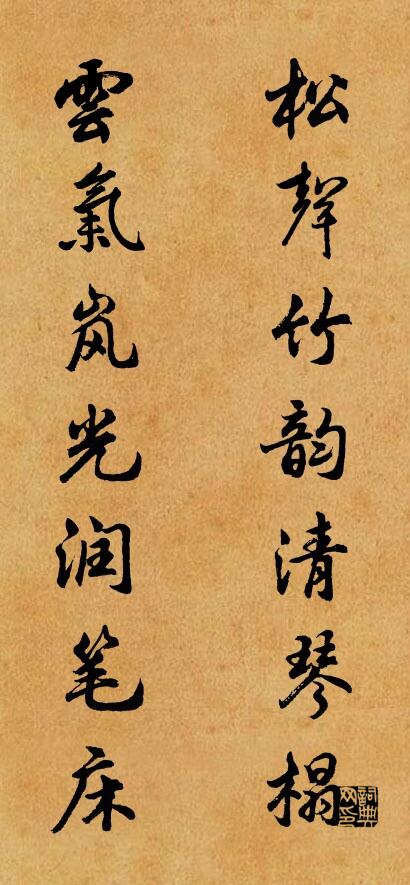 松聲竹韵清琴榻
雲氣岚光润笔床
詞典